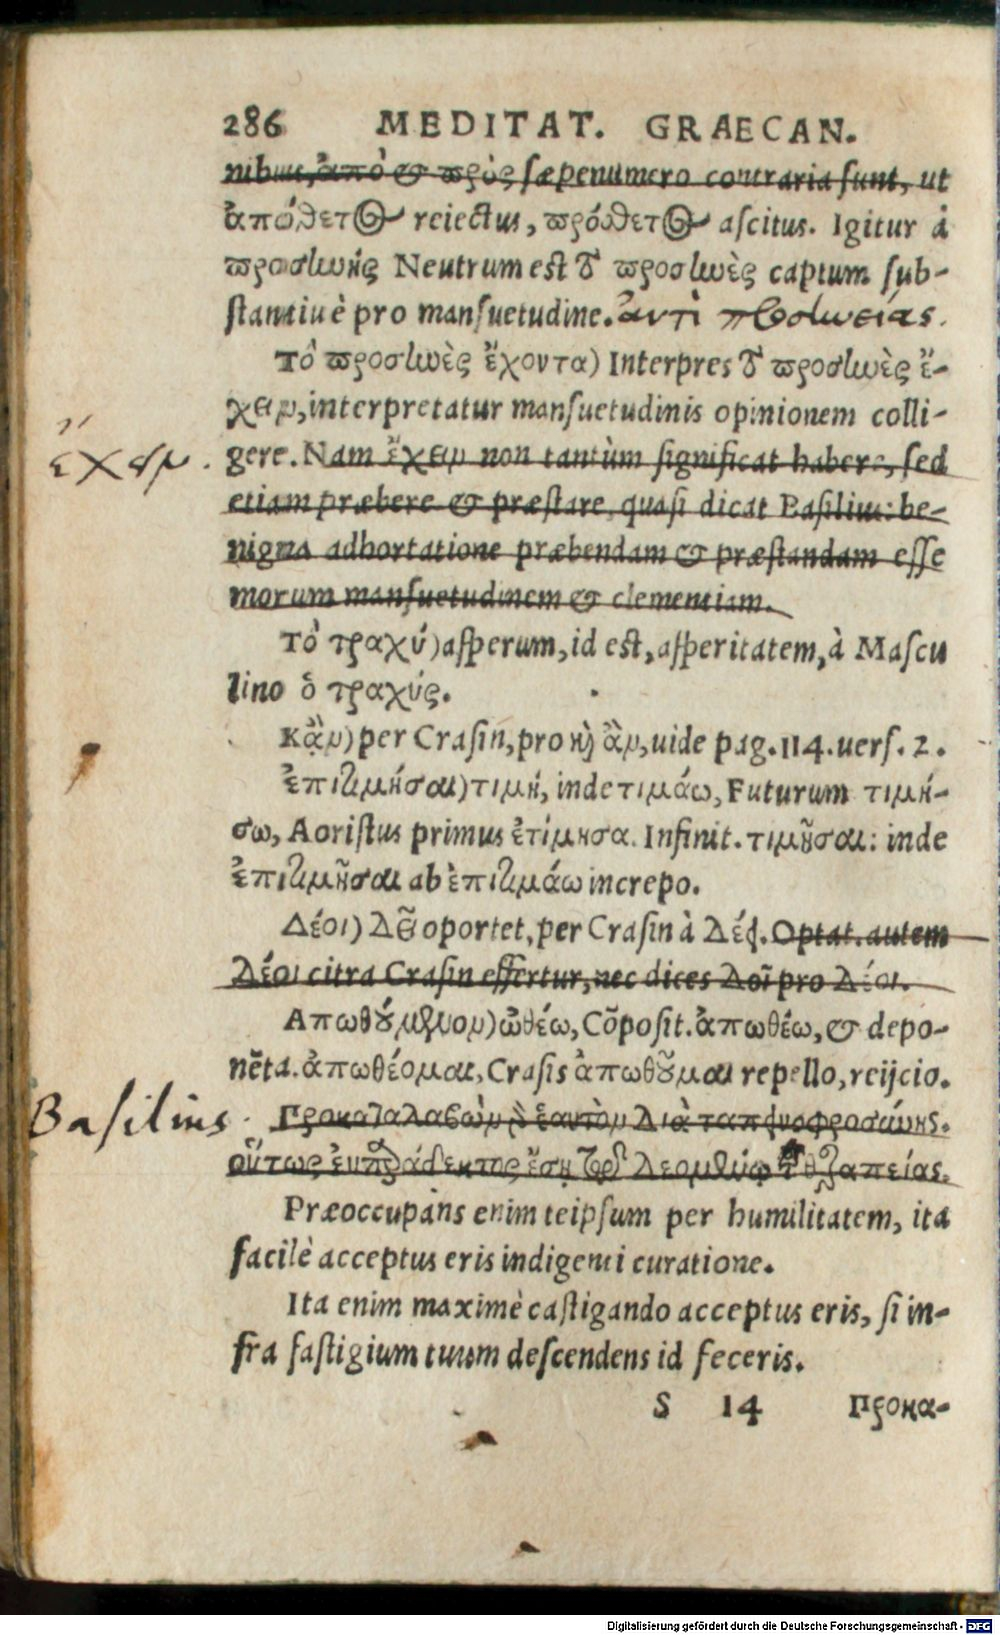 286 MEDITAT. GRAECAN.
nibus, ἀπὸ & πρὸς sæpenumero contraria sunt, ut
ἀπόθετος reiectus, πρόσθετος ascitus. Igitur à
προσηνής Neutrum est τὸ προσηνὲς captum sub-
stantiuè pro mansuetudine. ἀντὶ προσηνείας.
Τὸ προσηνὲς ἔχοντα) Interpres τὸ προσηνὲς ἔ-
χειν, interpretatur mansuetudinis opinionem colli-
ἔχειν.
gere. Nam ἔχειν non tantùm significat habere, sed
etiam præbere & præstare, quasi dicat Basilius: be-
nigna adhortatione præbendam & præstandam esse
morum mansuetudinem & clementiam.
Τὸ τραχύ) asperum, id est, asperitatem, à Mascu
lino ὁ τραχύς.
Κᾂν) per Crasin, pro καὶ ἂν, uide pag. 114. uers. 2.
ἐπιτιμήσαι) τιμή, inde τιμάω, Futurum τιμή-
σω, Aoristus primus ἐτίμησα. Infinit. τιμῆσαι: inde
ἐπιτιμῆσαι ab ἐπιτιμάω increpo.
Δέοι) Δεῖ oportet, per Crasin à Δέει. Optat. autem
Δέοι citra Crasin effertur, nec dices Δοῖ pro Δέοι.
Απωθούμενον) ὠθέω, Cõposit. ἀπωθέω, & depo-
nẽta. ἀπωθέομαι, Crasis ἀπωθοῦμαι repello, reijcio.
Basilius.
Προκαταλαβὼν ἑαυτὸν διὰ ταπεινοφροσύνης.
οὕτως εὐπαράδεκτος ἔσῃ τῷ δεομένῳ τῆς θεραπείας.
Præoccupans enim teipsum per humilitatem, ita
facilè acceptus eris indigenti curatione.
Ita enim maximè castigando acceptus eris, si in-
fra fastigium tuum descendens id feceris.
S 14 Προκα-
Digitalisierung gefördert durch die Deutsche Forschungsgemeinschaft - DFG